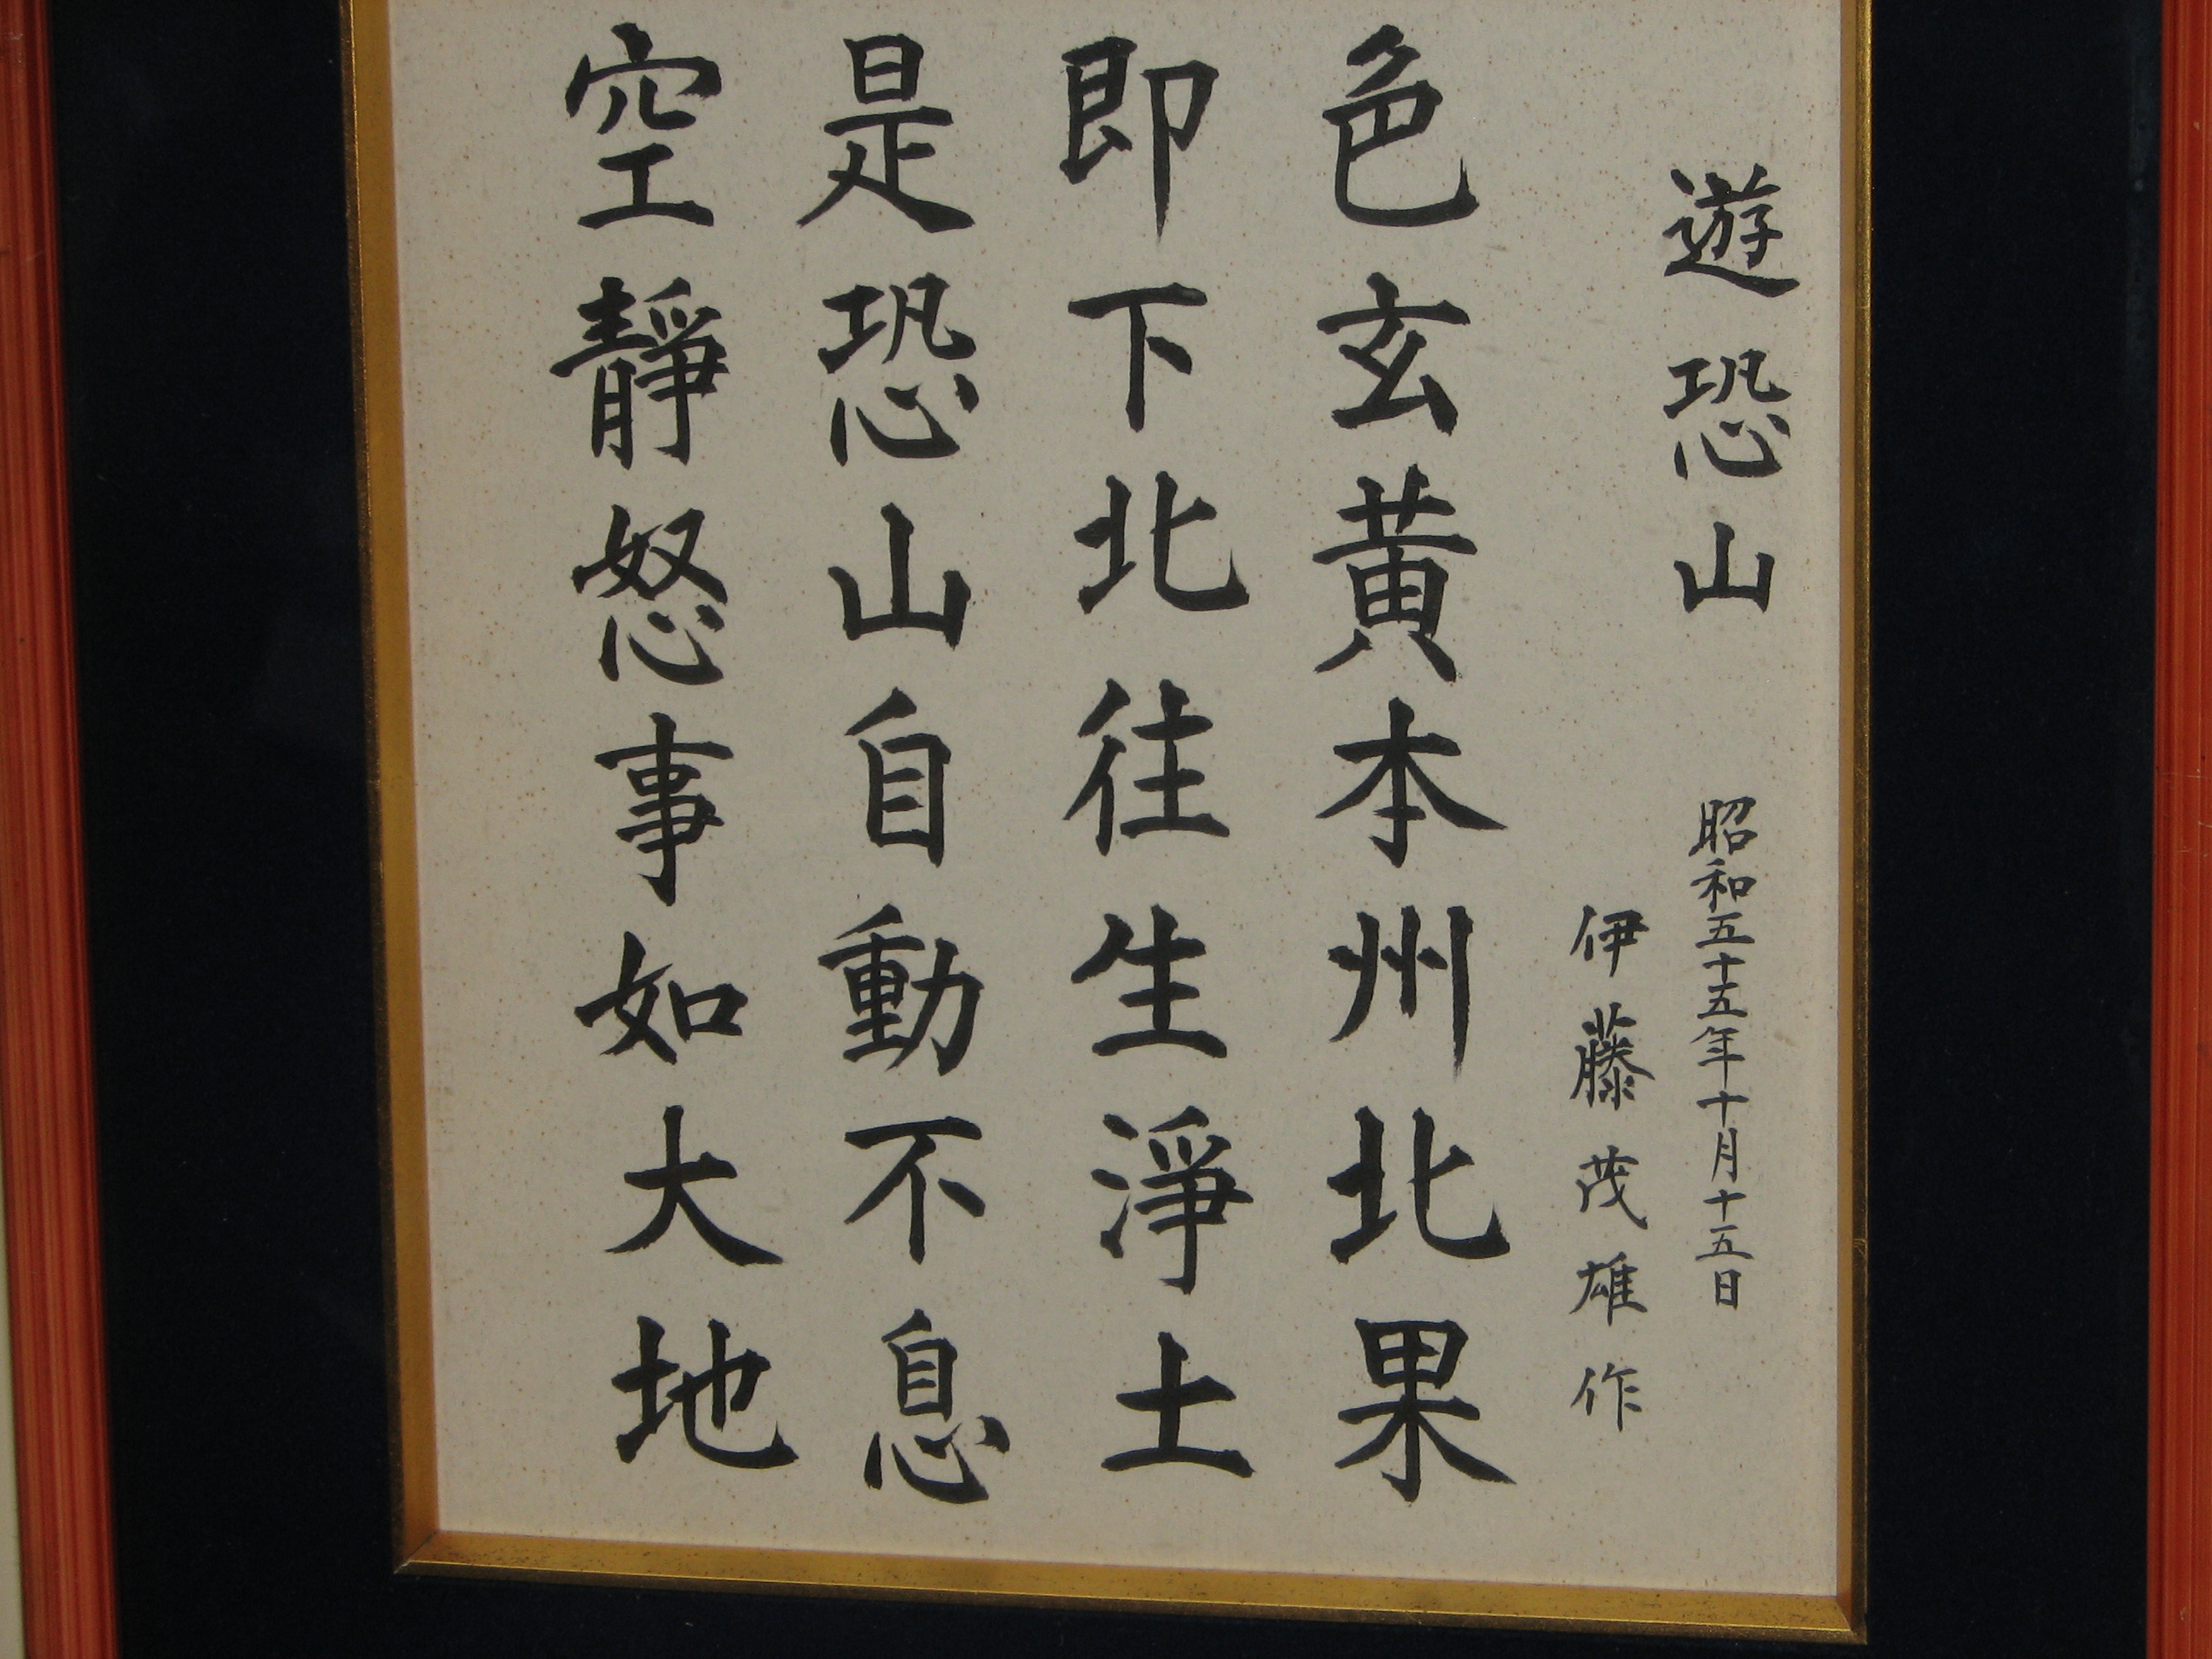 遊恐山 昭和五十五年十月十五日
伊藤茂雄作
色玄黄本州北果
即下北往生淨土
是恐山自動不息
空靜怒事如大地